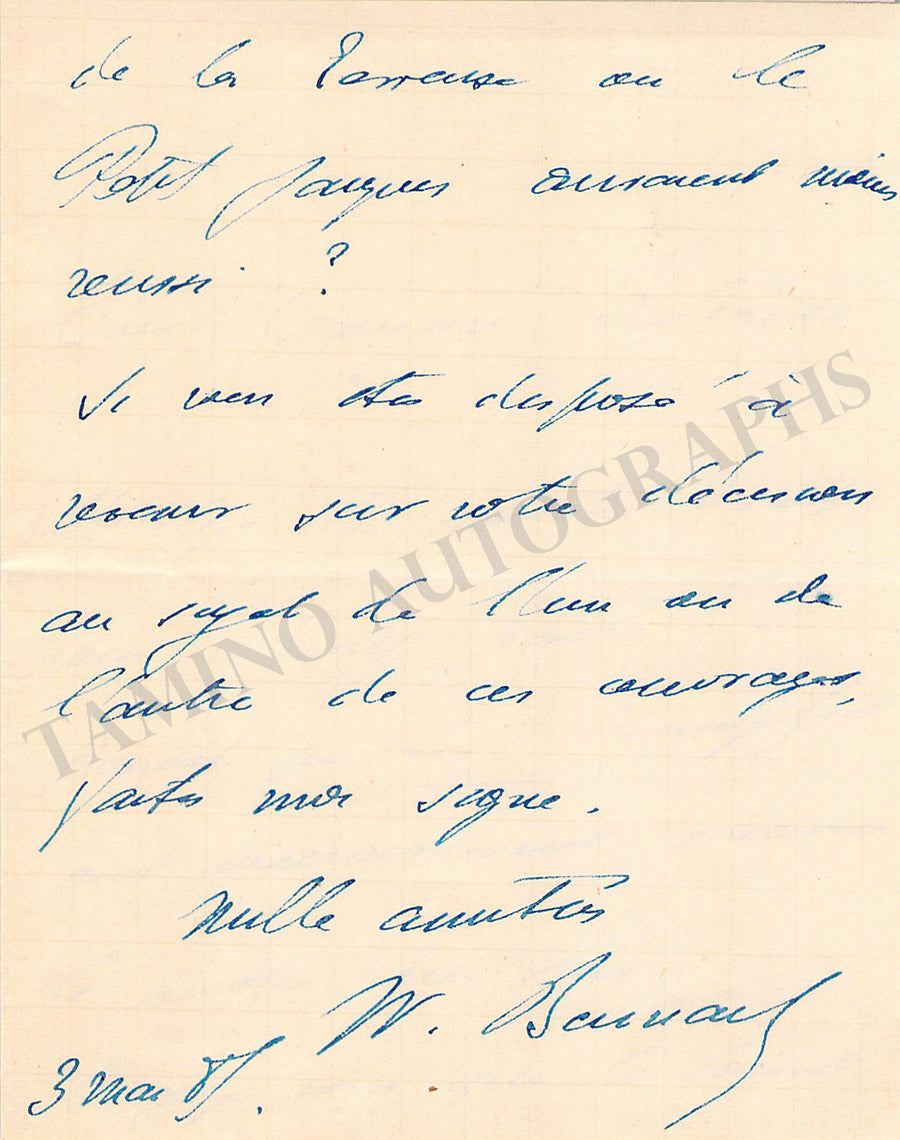 de la Terreuse ou le
Petit Jacques auraient moins
reussi ?
Si vous êtes disposé à
revenir sur votre décision
au sujet de l'un ou de
l'autre de ces ouvrages,
faites moi signe.
Mille amitiés
W. Busnach
3 mai 85.
TAMINO AUTOGRAPHS